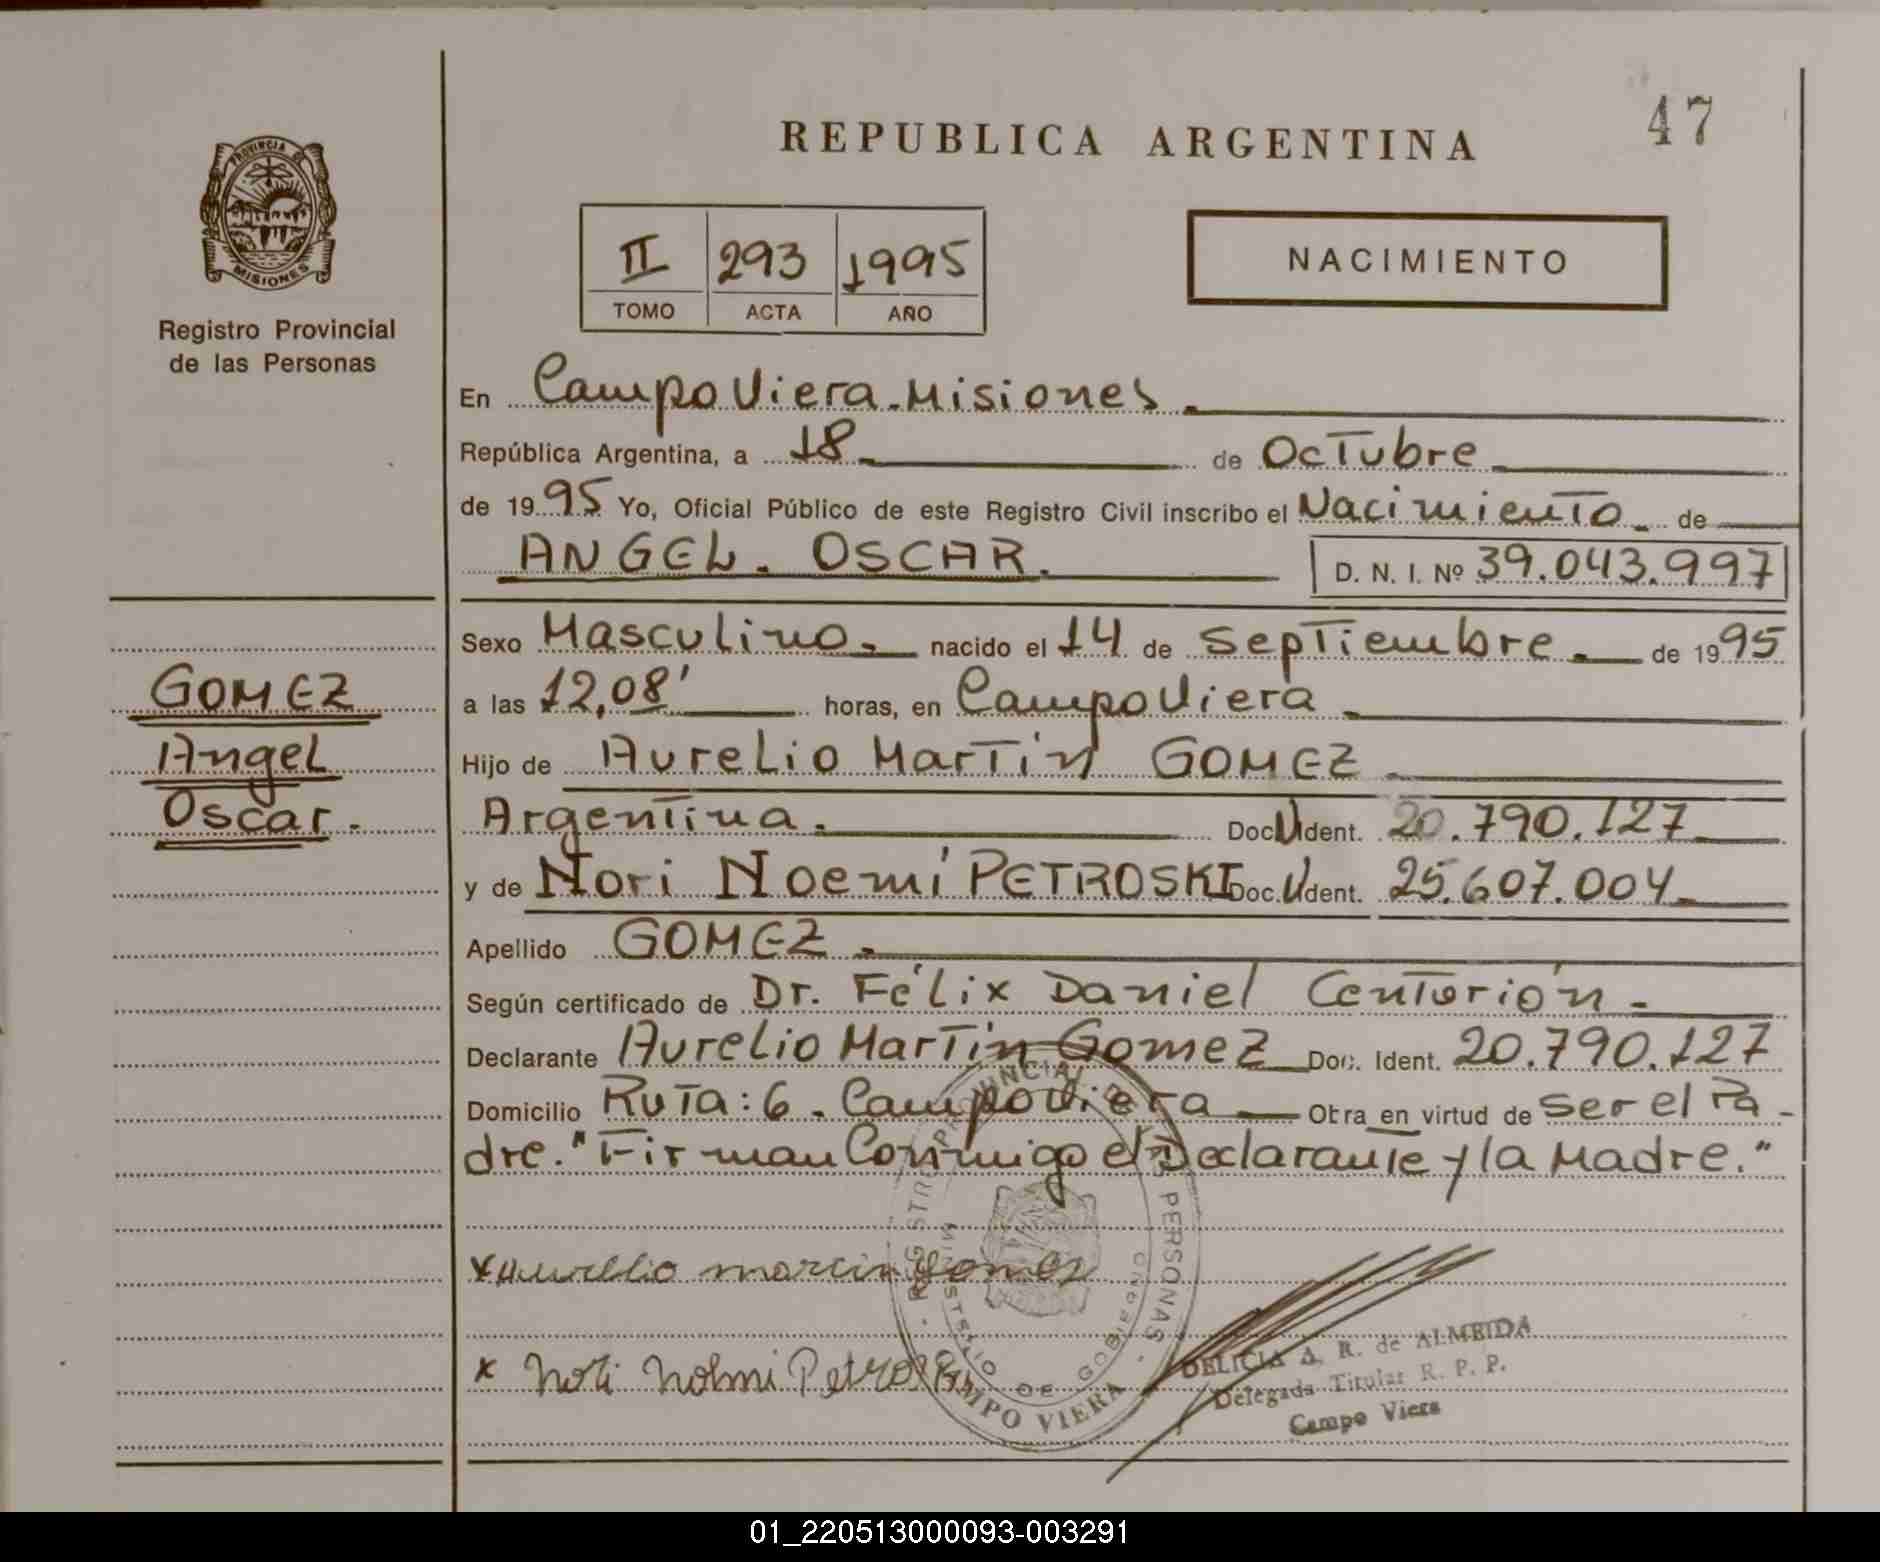 47
REPUBLICA ARGENTINA
PROVINCIA DE
MISIONES
Registro Provincial
de las Personas
II 293 1995
TOMO ACTA AÑO
NACIMIENTO
En Campo Viera. Misiones.
República Argentina, a 18 de Octubre
de 1995 Yo, Oficial Público de este Registro Civil inscribo el Nacimiento de
ANGEL. OSCAR. D. N. I. Nº 39.043.997
GOMEZ
Angel
Oscar.
Sexo Masculino. nacido el 14 de Septiembre. de 1995
a las 12,08' horas, en Campo Viera
Hijo de Aurelio Martín GOMEZ
Argentina. Doc. U Ident. 20.790.127
y de Nori Noemí PETROSKI Doc. U Ident. 25.607.004
Apellido GOMEZ.
Según certificado de Dr. Félix Daniel Centurión.
Declarante Aurelio Martín Gomez Doc. Ident. 20.790.127
Domicilio Ruta: 6. Campo Viera Obra en virtud de ser el Pa-
dre. "Firman Conmigo el Declarante y la Madre."
x Aurelio martin Gomez
x Nori Nohmi Petroski
REGISTRO PROVINCIAL DE LAS PERSONAS
MINISTERIO DE GOBIERNO
CAMPO VIERA
DELICIA A. R. de ALMEIDA
Delegada Titular R. P. P.
Campo Viera
01_220513000093-003291